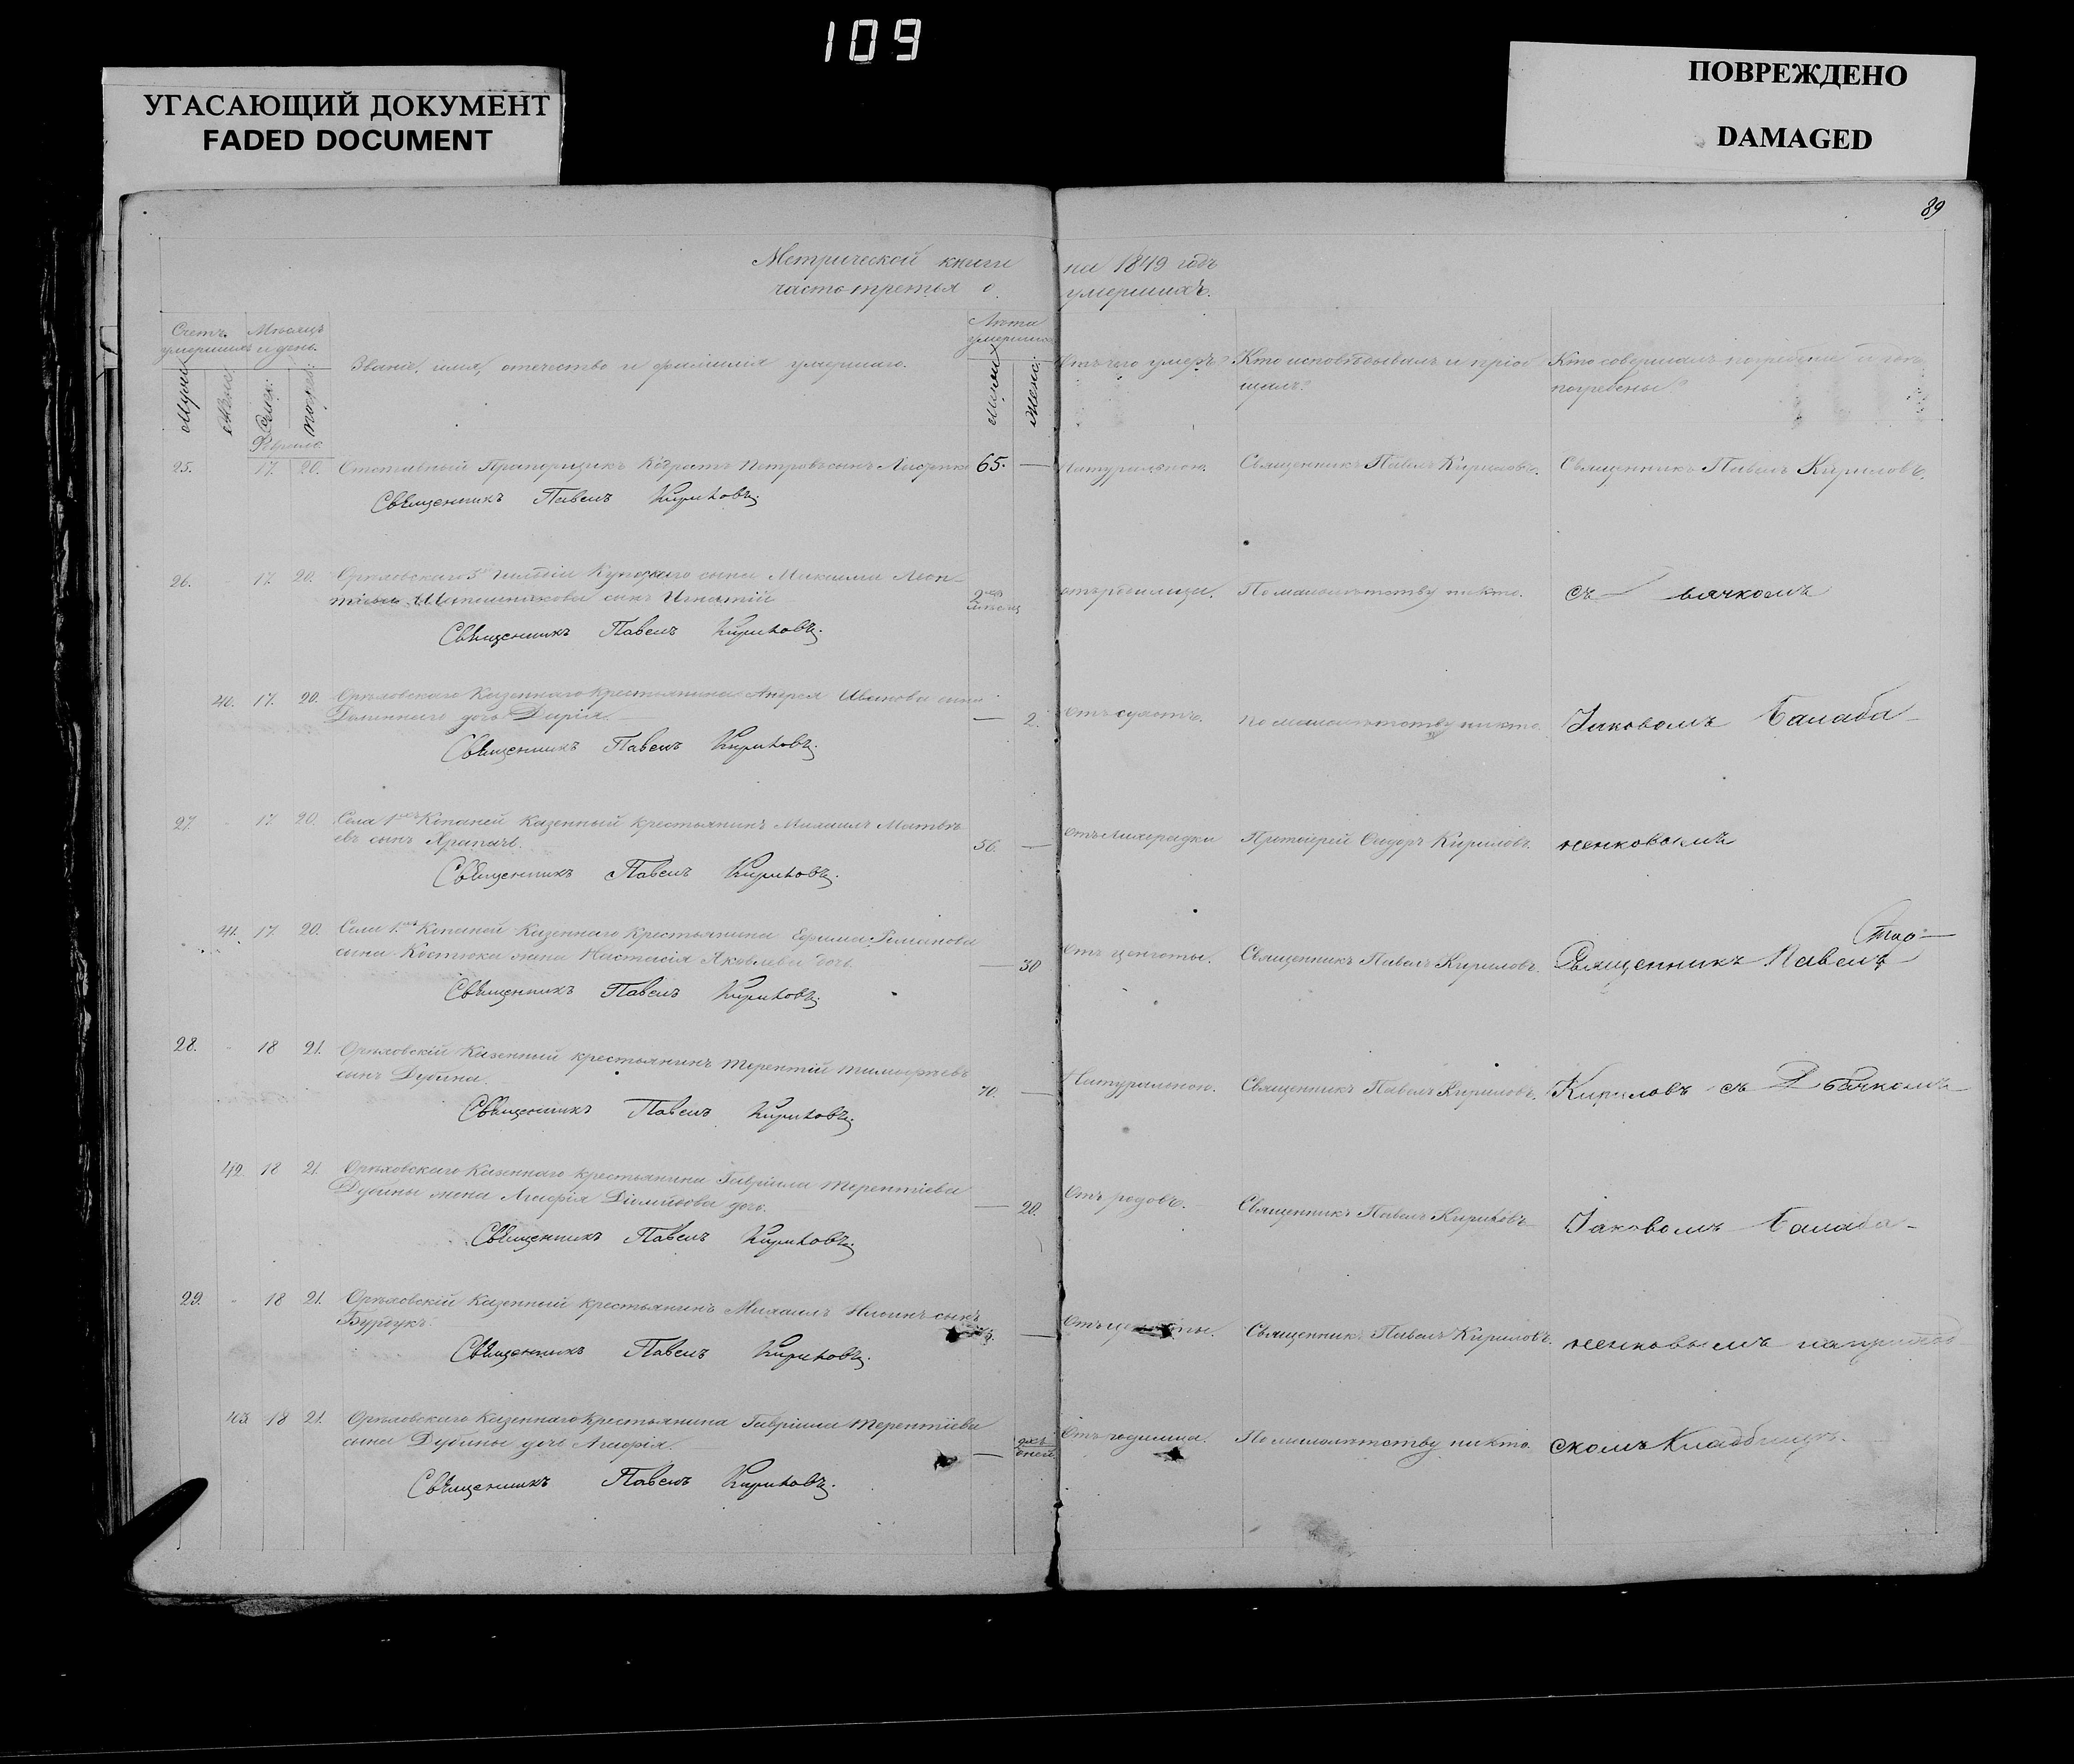 109
УГАСАЮЩИЙ ДОКУМЕНТ
FADED DOCUMENT
ПОВРЕЖДЕНО
DAMAGED
89
Метрической книги на 1849 годъ
часть третья о умершихъ.
Счетъ умершихъ
Мѣсяцъ и день.
Званіе, имя, отечество и фамилія умершаго.
Лѣта умершаго
Отъ чего умеръ?
Кто исповѣдывалъ и пріобщалъ?
Кто совершалъ погребеніе и гдѣ погребены?
Февраль
25. 17. 20. Отставный Прапорщикъ Петровъ сынъ 65. — Натуральною. Священникъ Павелъ Кириловъ. Священникъ Павелъ Кириловъ.
Священникъ Павелъ Кириловъ.
26. 17. 20. Орѣховскаго 3й гильдіи Купецкаго сына Максима Леон-
тіева сынъ Игнатій 2хъ мѣсяц отъ родимца. По малолѣтству никто. съ вячкомъ
Священникъ Павелъ Кириловъ.
40. 17. 20. Орѣховскаго Казеннаго крестьянина Андрея Иванова сына
дочь Дарія. — 2. Отъ сухотъ. По малолѣтству никто. Іаковомъ Балаба-
Священникъ Павелъ Кириловъ.
27. 17. 20. Села Копаней Казенный крестьянинъ Михаилъ Матвѣ-
евъ сынъ Храпачъ. 56. — отъ лихорадки Протоіерей Сидоръ Кириловъ. ненковымъ
Священникъ Павелъ Кириловъ.
41. 17. 20. Села Копаней Казеннаго Крестьянина Ефима Романова
сына Костюка жена Настасія Яковлева дочь. — 30 Отъ цинготы. Священникъ Павелъ Кириловъ. Священникъ Павелъ
Священникъ Павелъ Кириловъ.
28. 18 21. Орѣховскій Казенный крестьянинъ Терентій Тимофѣевъ
сынъ Дубина. 70. — Натуральною. Священникъ Павелъ Кириловъ. Кириловъ съ Дьячкомъ
Священникъ Павелъ Кириловъ.
42 18 21. Орѣховскаго Казеннаго крестьянина Гавріила Терентіева
Дубины жена Агафія Діамидова дочь. — 20. Отъ родовъ. Священникъ Павелъ Кириловъ Іаковомъ Балаба-
Священникъ Павелъ Кириловъ.
29. 18 21. Орѣховскій Казенный крестьянинъ Михаилъ Ильинъ сынъ
Бурдукъ. — Священникъ Павелъ Кириловъ. ненковымъ на приход
Священникъ Павелъ Кириловъ.
43 18 21. Орѣховскаго Казеннаго Крестьянина Гавріила Терентіева
сына Дубины дочь Агафія. — дней. Отъ родимца. По малолѣтству никто. скомъ Кладбищѣ.
Священникъ Павелъ Кириловъ.